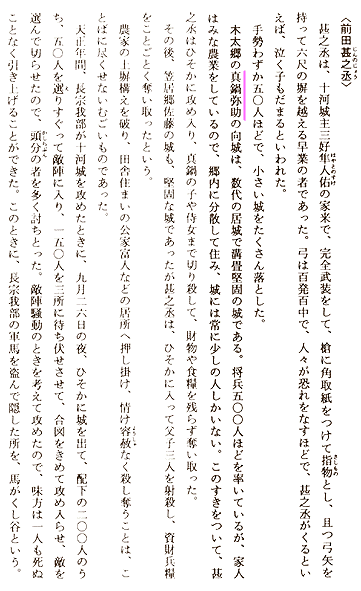 〈前田甚之丞〉
じんのじょう
甚之丞は、十河城主三好隼人佐の家来で、完全武装をして、槍に角取紙をつけて指物とし、且つ弓矢を
はやとのすけ
さしもの
持って六尺の塀を越える早業の者であった。弓は百発百中で、人々が恐れをなすほどで、甚之丞がくるとい
えば、泣く子もだまるといわれた。
手勢わずか五〇人ほどで、小さい城をたくさん落とした。
木太郷の真鍋弥助の向城は、数代の居城で溝畳堅固の城である。将兵五〇〇人ほどを率いているが、家人
はみな農業をしているので、郷内に分散して住み、城には常に少しの人しかいない。このすきをついて、甚
之丞はひそかに攻め入り、真鍋の子や侍女まで切り殺して、財物や食糧を残らず奪い取った。
その後、笠居郷佐藤の城も、堅固な城であったが甚之丞は、ひそかに入って父子三人を射殺し、資財兵糧
をことごとく奪い取ったという。
農家の土塀構えを破り、田舎住まいの公家富人などの居所へ押し掛け、情け容赦なく殺し奪うことは、こ
ようしゃ
とばに尽くせないむごいものであった。
天正年間、長宗我部が十河城を攻めたときに、九月二六日の夜、ひそかに城を出て、配下の二〇〇人のう
ち、五〇人を選りすぐって敵陣に入り、一五〇人を三所に待ち伏せさせて、合図をきめて攻め入らせ、敵を
選んで切らせたので、頭分の者を多く討ちとった。敵陣騒動のときを考えて攻めたので、味方は一人も死ぬ
ことなく引き上げることができた。このときに、長宗我部の軍馬を盗んで隠した所を、馬がくし谷という。